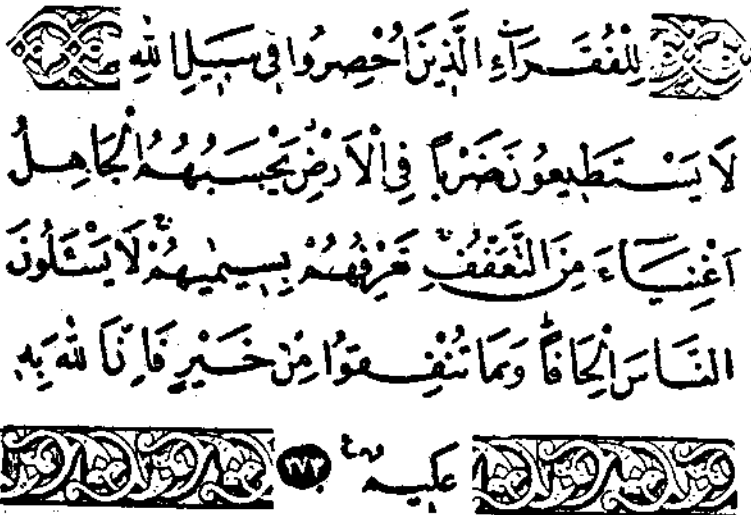 لِلْفُقَرَٓاءِ الَّذ۪ينَ اُحْصِرُوا ف۪ي سَب۪يلِ اللّٰهِ
لَا يَسْتَط۪يعُونَ ضَرْباً فِي الْاَرْضِۘ يَحْسَبُهُمُ الْجَاهِلُ
اَغْنِيَٓاءَ مِنَ التَّعَفُّفِۚ تَعْرِفُهُمْ بِس۪يمٰيهُمْۚ لَا يَسْـَٔلُونَ
النَّاسَ اِلْحَافاًۜ وَمَا تُنْفِقُوا مِنْ خَيْرٍ فَاِنَّ اللّٰهَ بِه۪
عَل۪يمٌ۟ ﴿٢٧٣﴾